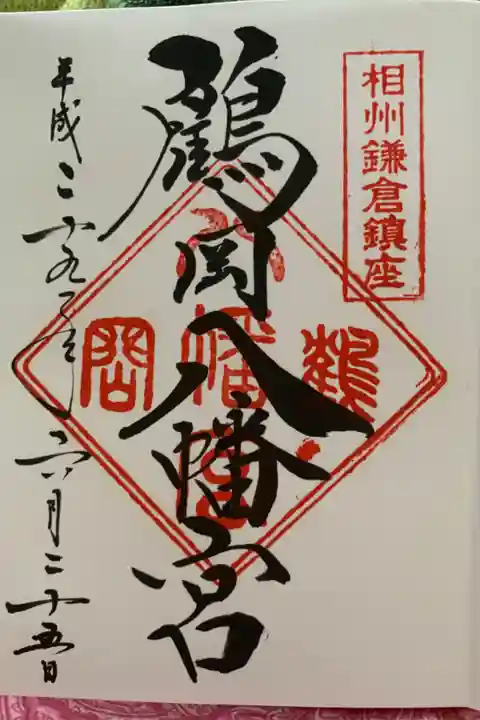 相州鎌倉鎮座
鶴岡八幡宮
鶴
八幡宮
岡
平成二十九年六月二十五日